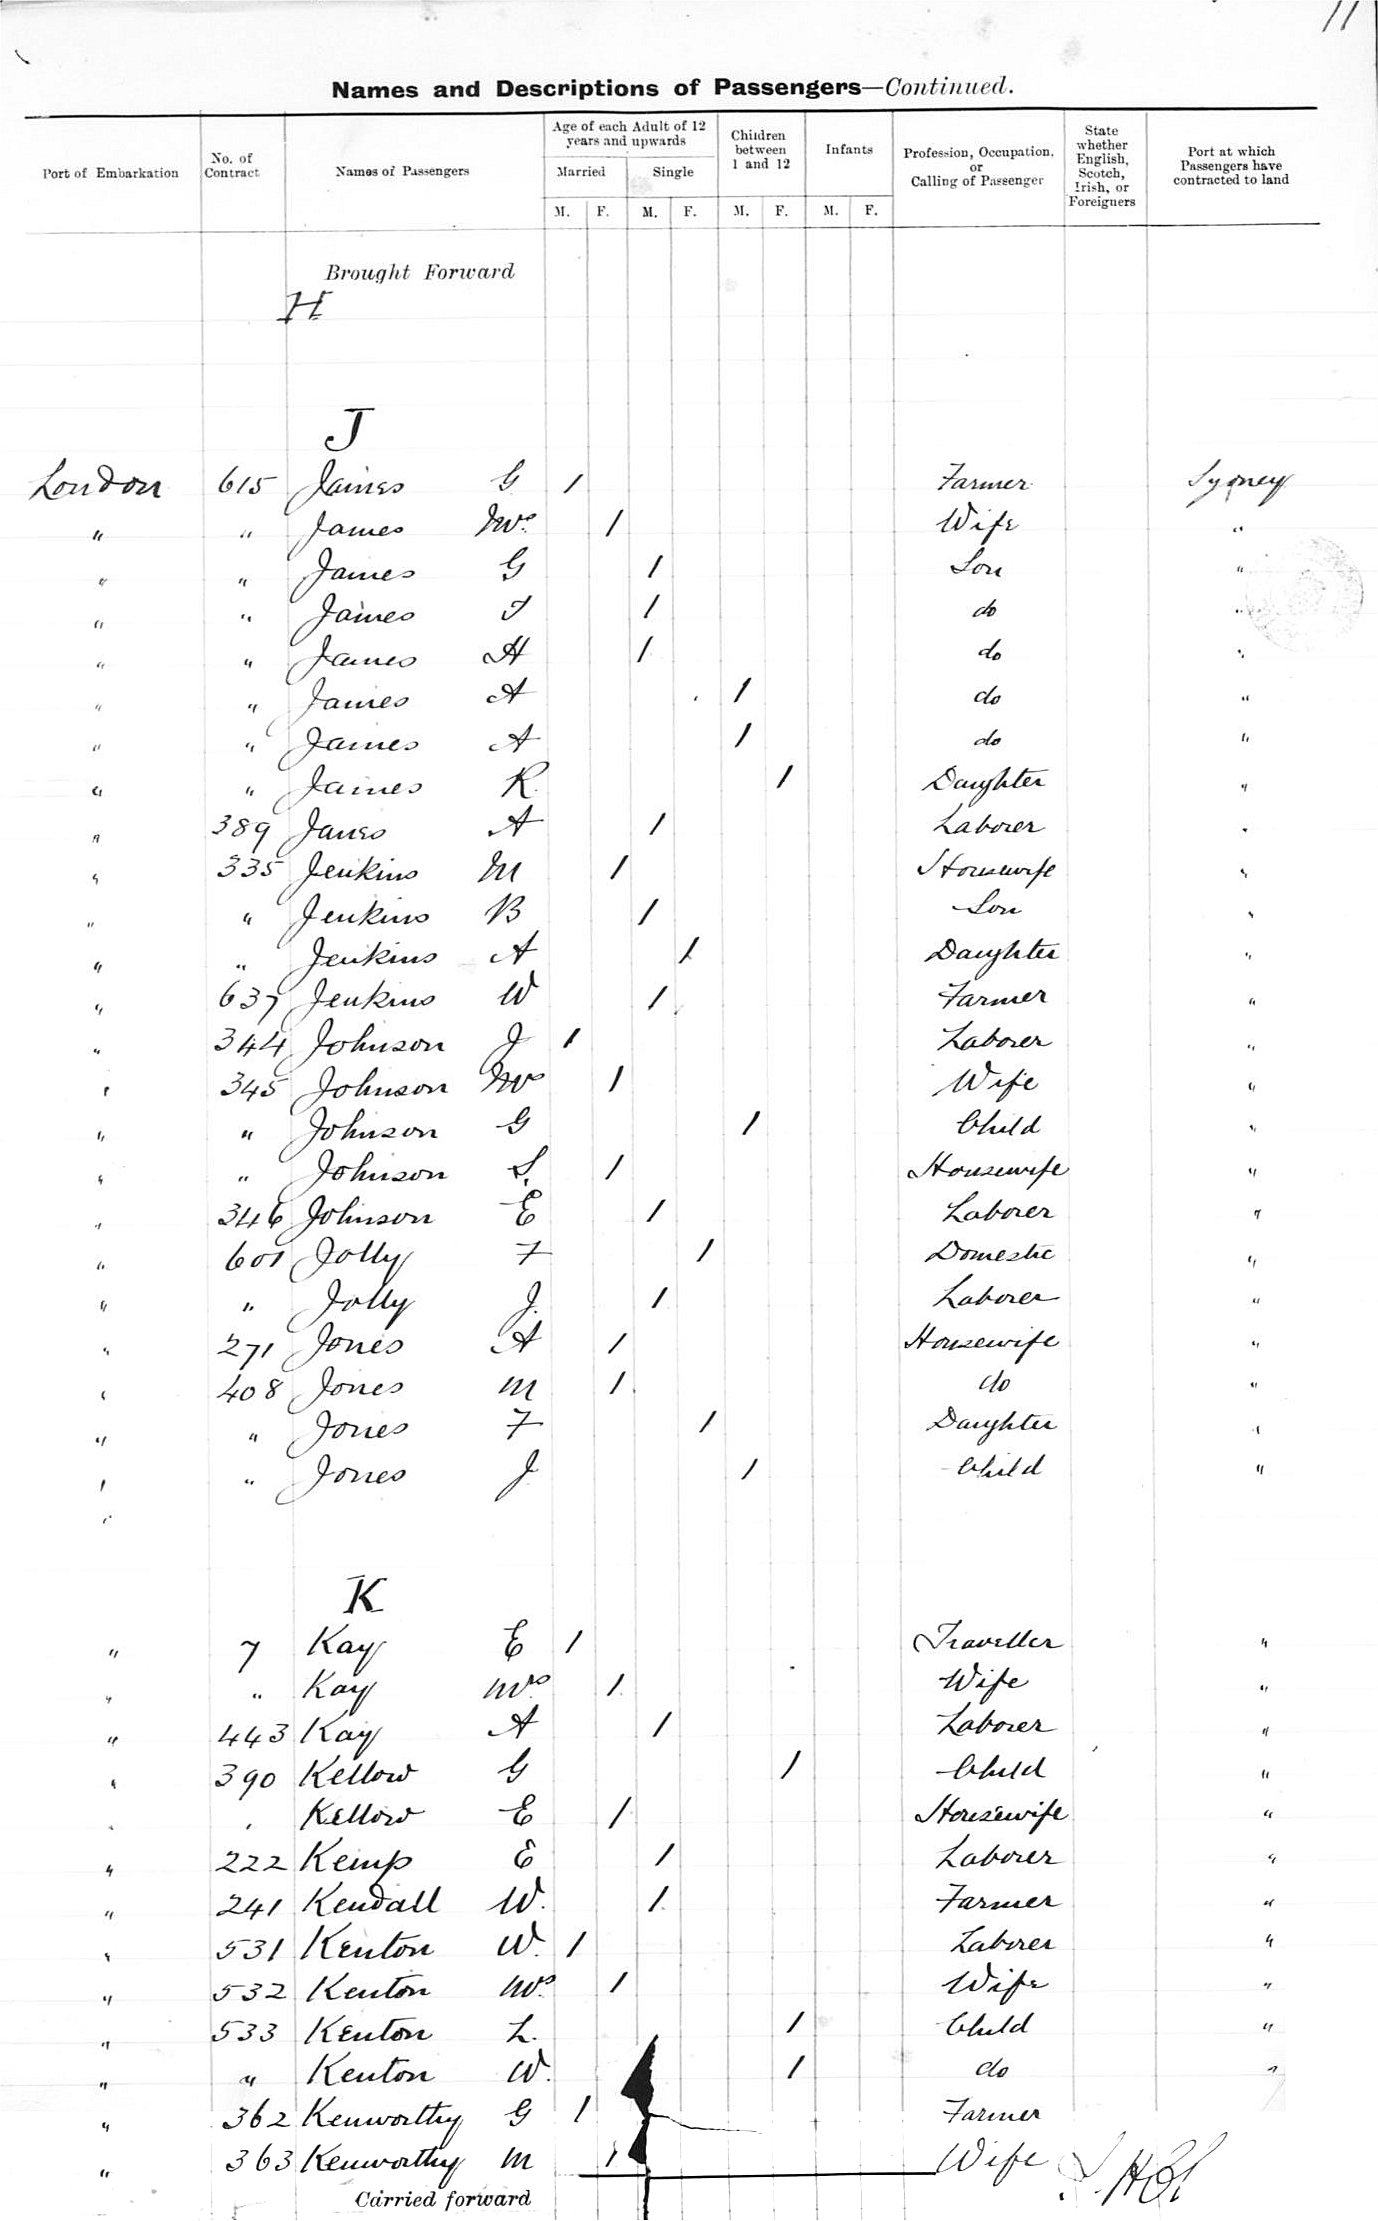 11
Names and Descriptions of Passengers—Continued.
Port of Embarkation No. of Contract Names of Passengers Age of each Adult of 12 years and upwards Married Single Children between 1 and 12 Infants Profession, Occupation, or Calling of Passenger State whether English, Scotch, Irish, or Foreigners Port at which Passengers have contracted to land
M. F. M. F. M. F. M. F.
Brought Forward
H
J
London 615 James G 1 Farmer Sydney
" " James Mrs 1 Wife "
" " James G 1 Son "
" " James J 1 do "
" " James H 1 do "
" " James A 1 do "
" " James A 1 do "
" " James R. 1 Daughter "
" 389 Janes A 1 Laborer "
" 335 Jenkins M 1 Housewife "
" " Jenkins B 1 Son "
" " Jenkins A 1 Daughter "
" 637 Jenkins W 1 Farmer "
" 344 Johnson J 1 Laborer "
" 345 Johnson Mrs 1 Wife "
" " Johnson G 1 Child "
" " Johnson S. 1 Housewife "
" 346 Johnson E 1 Laborer "
" 601 Jolly F 1 Domestic "
" " Jolly J. 1 Laborer "
" 271 Jones A 1 Housewife "
" 408 Jones M 1 do "
" " Jones F 1 Daughter "
" " Jones J 1 Child "
"
K
" 7 Kay E 1 Traveller "
" " Kay Mrs 1 Wife "
" 443 Kay A 1 Laborer "
" 390 Kellow G 1 Child "
" " Kellow E 1 Housewife "
" 222 Kemp E 1 Laborer "
" 241 Kendall W. 1 Farmer "
" 531 Kenton W. 1 Laborer "
" 532 Kenton Mrs 1 Wife "
" 533 Kenton L. 1 Child "
" " Kenton W. 1 do "
" 362 Kenworthy G 1 Farmer
" 363 Kenworthy M 1 Wife
Carried forward